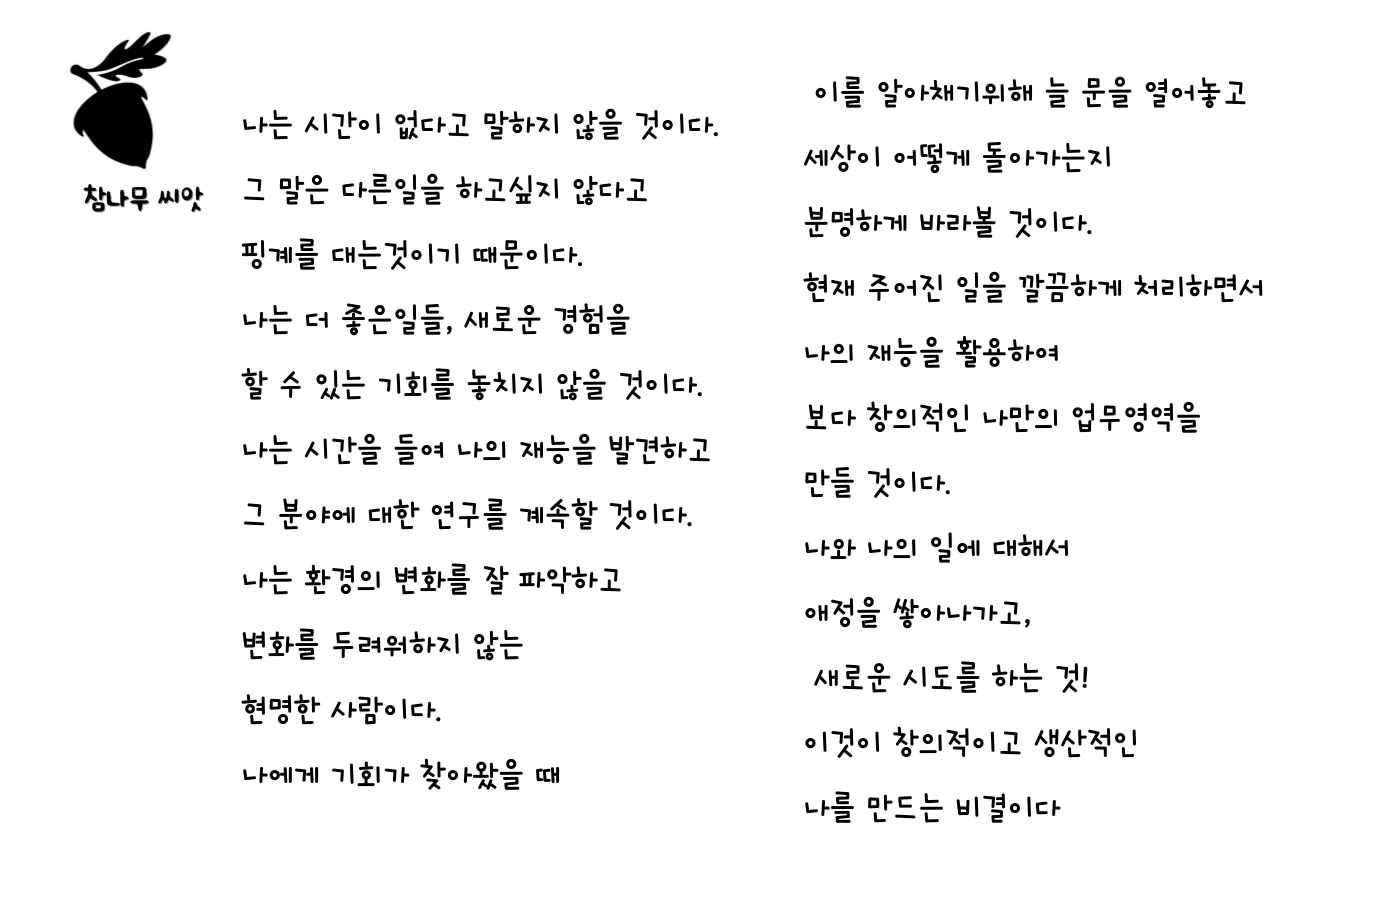 참나무 씨앗
나는 시간이 없다고 말하지 않을 것이다.
그 말은 다른일을 하고싶지 않다고
핑계를 대는것이기 때문이다.
나는 더 좋은일들, 새로운 경험을
할 수 있는 기회를 놓치지 않을 것이다.
나는 시간을 들여 나의 재능을 발견하고
그 분야에 대한 연구를 계속할 것이다.
나는 환경의 변화를 잘 파악하고
변화를 두려워하지 않는
현명한 사람이다.
나에게 기회가 찾아왔을 때
이를 알아채기위해 늘 문을 열어놓고
세상이 어떻게 돌아가는지
분명하게 바라볼 것이다.
현재 주어진 일을 깔끔하게 처리하면서
나의 재능을 활용하여
보다 창의적인 나만의 업무영역을
만들 것이다.
나와 나의 일에 대해서
애정을 쌓아나가고,
새로운 시도를 하는 것!
이것이 창의적이고 생산적인
나를 만드는 비결이다